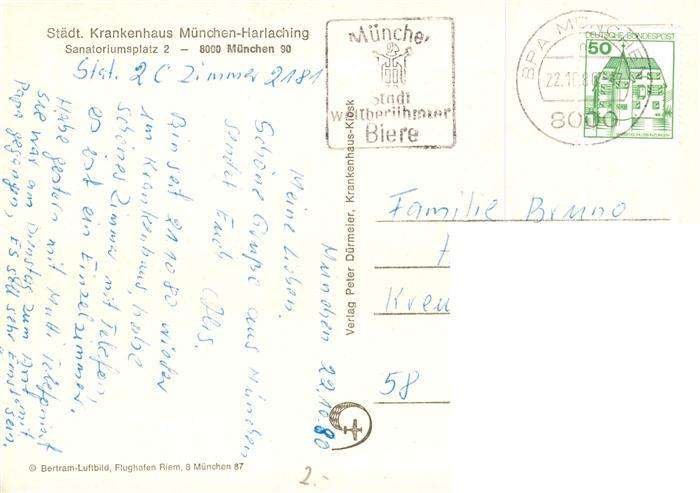 Städt. Krankenhaus München-Harlaching
Sanatoriumsplatz 2 – 8000 München 90
Stat. 2 C Zimmer 2181
München 22.10.80
Meine Lieben.
Schöne Grüße aus München
sendet Euch
Bin seit 21.10.80 wieder
im Krankenhaus, habe
schönes Zimmer mit Telefon,
es ist ein Einzelzimmer.
Habe gestern mit Mutti telefoniert
sie war am Dienstag zum
Papa gegangen, Es soll sehr sein.
© Bertram-Luftbild, Flughafen Riem, 8 München 87
2.-
Verlag Peter Dürmeier, Krankenhaus-Kiosk
München
Stadt
weltberühmter
Biere
BPA MÜNCHEN
22.10.8
8000
DEUTSCHE BUNDESPOST
50
Familie Bruno
Kreu
58